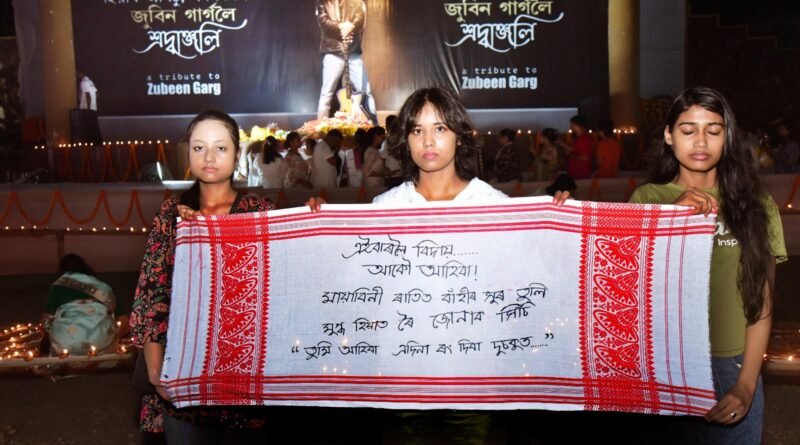 জুবিন গাৰ্গলৈ
শ্ৰদ্ধাঞ্জলি
a tribute to
Zubeen Garg
জুবিন গাৰ্গলৈ
শ্ৰদ্ধাঞ্জলি
a tribute to
Zubeen Garg
এইবাৰলৈ বিদায়.......
আকৌ আহিবা!
মায়াবিনী ৰাতিত বাঁহীৰ সুৰ তুলি
মুগ্ধ হিয়াত ৰৈ জোনাক সিঁচি
“তুমি আহিবা এদিনা ৰং দিবা দুচকুত.......”